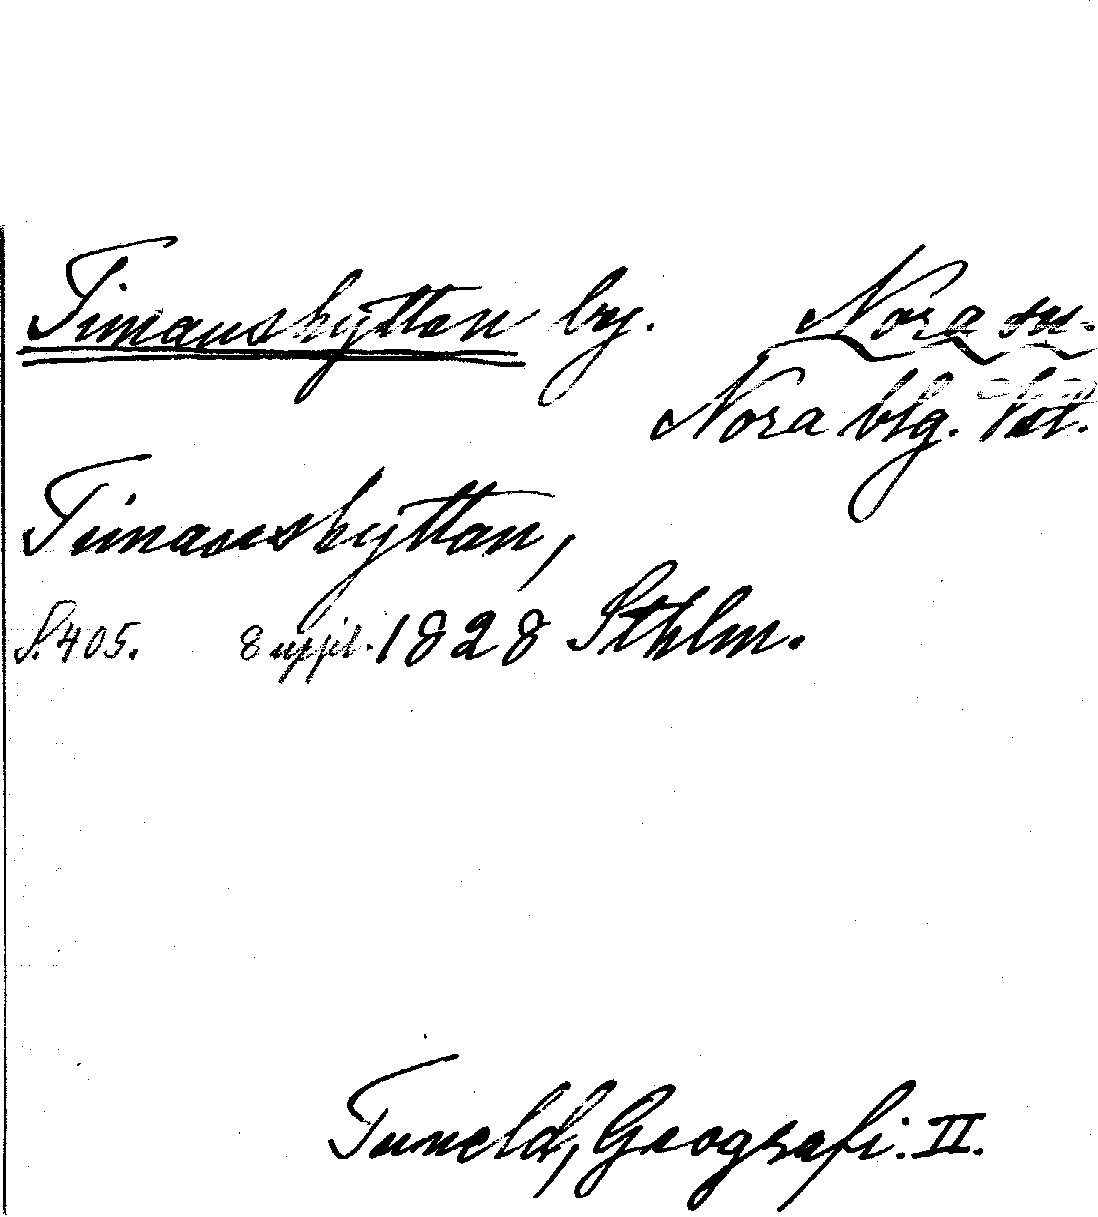 Timanshyttan by. Nora sn.
Nora bfg. Vst.
Timanshyttan,
S. 405. 8 uppl. 1828 Sthlm.
Tuneld, Geografi. II.